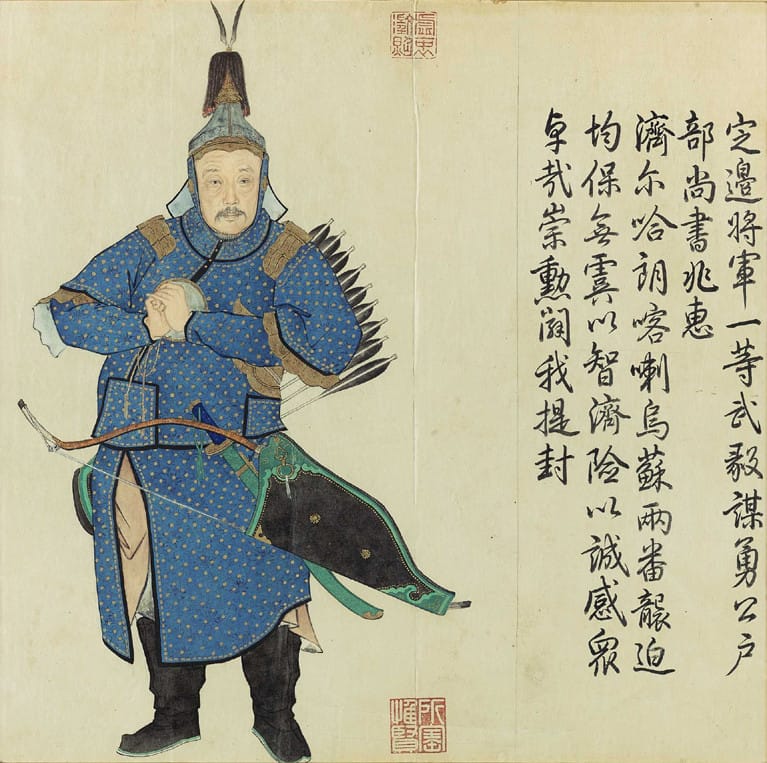 定邊將軍一等武毅謀勇公戶
部尚書兆惠
濟尔哈朗喀喇烏蘇兩番襲迫
均保無虞以智濟險以誠感眾
卓哉崇勳闢我提封
所寶惟賢